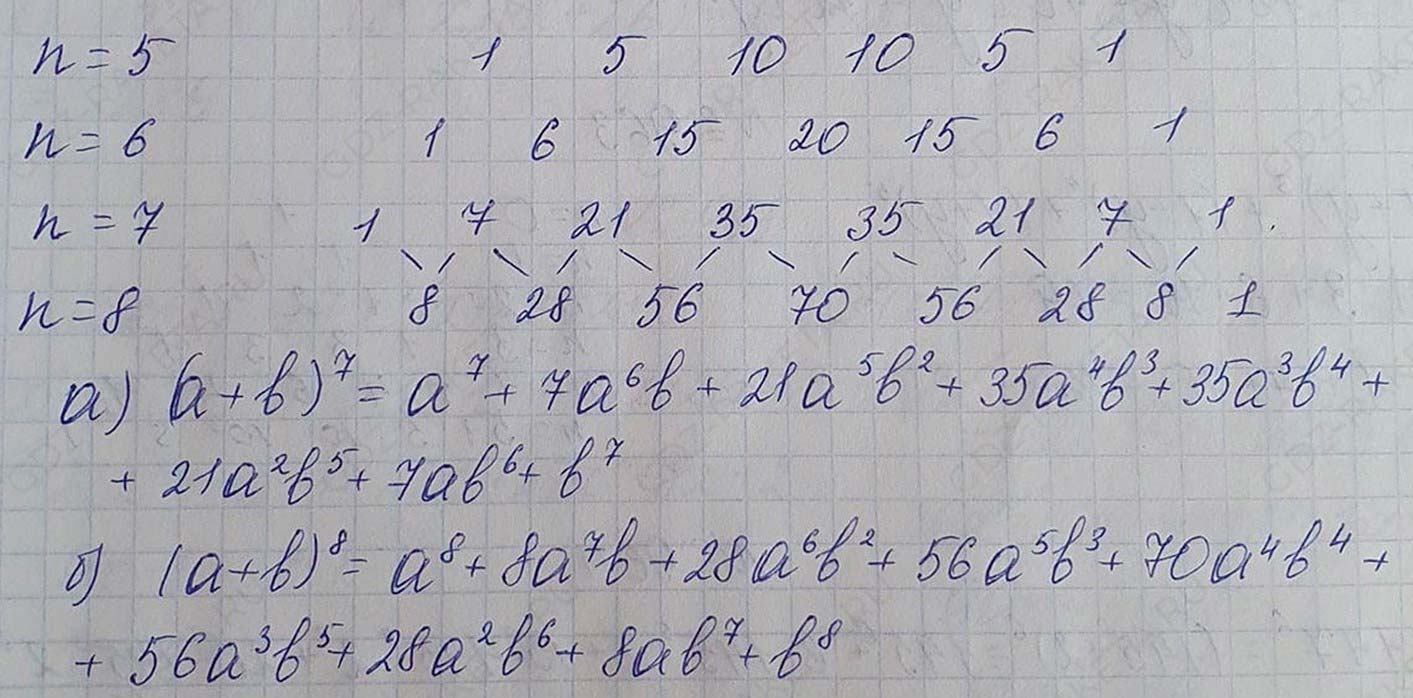 n = 5 1 5 10 10 5 1
n = 6 1 6 15 20 15 6 1
n = 7 1 7 21 35 35 21 7 1
n = 8 8 28 56 70 56 28 8 1
а) (a+b)⁷ = a⁷ + 7a⁶b + 21a⁵b² + 35a⁴b³ + 35a³b⁴ +
+ 21a²b⁵ + 7ab⁶ + b⁷
б) (a+b)⁸ = a⁸ + 8a⁷b + 28a⁶b² + 56a⁵b³ + 70a⁴b⁴ +
+ 56a³b⁵ + 28a²b⁶ + 8ab⁷ + b⁸